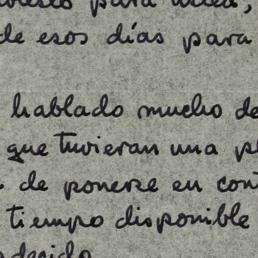 para
de esos días para
hablado mucho de
que tuvieran una
de ponerse en
tiempo disponible